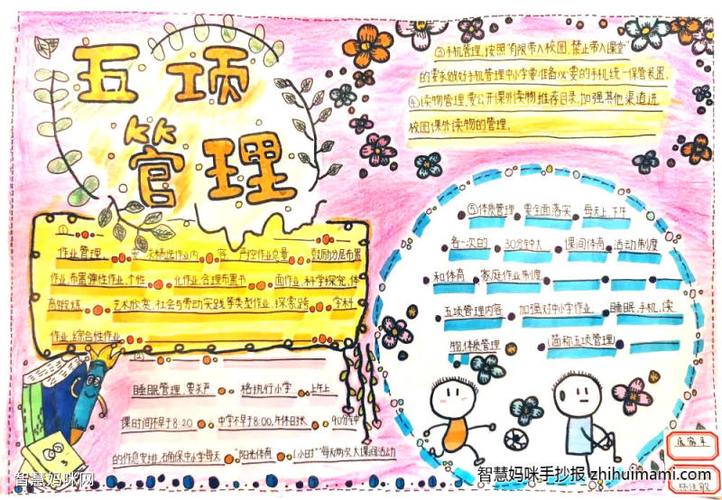 五项
管理
③手机管理,按照"有限带入校园,禁止带入课堂"
的要求做好手机管理中小学要准备
的手机统一保管装置.
④读物管理,要公开课外读物推荐目录,加强其他渠道进
校园课外读物的管理.
作业管理, 严控作业总量
作业布置弹性作业,个性 化作业,合理布置书 面作业,科学探究,体
艺术欣赏,社会与劳动实践等类型作业,探索跨 学科
作业,综合性作业
⑤体质管理 要全面落实 每天上下午
各一次的 30分钟大 课间体育 活动制度
和体育 家庭作业制度
五项管理内容 加强对中小学作业 睡眠,手机,读
物,体质管理 简称五项管理
睡眠管理,要求严 格执行小学 上午上
课时间不早于8:20 中学不早于8:00,午休日长 90分钟
的作息安排,确保中小学每天 阳光体育 1小时"每天两次大课间活动
智慧妈咪网
智慧妈咪手抄报 zhihuimami.com